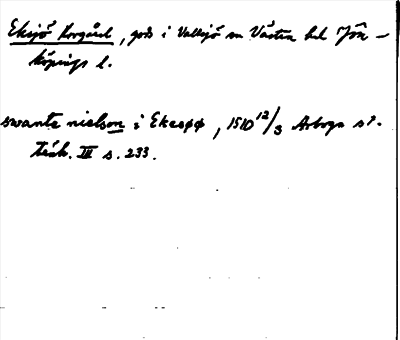 Eksjö hovgård, gods i Vallsjö sn Västra hd Jön-
köpings l.
swante nielson i Ekesøø, 1510 12/3 Arboga st.
tänk. III s. 233.